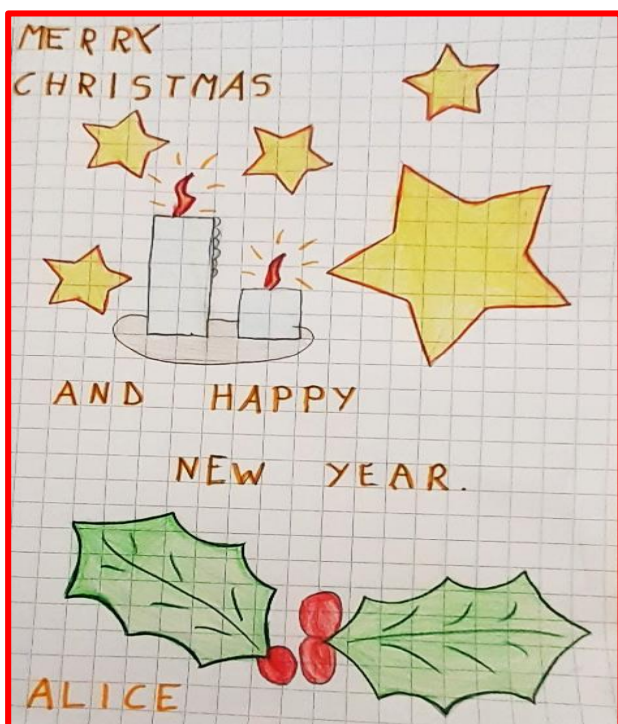 MERRY
CHRISTMAS
AND HAPPY
NEW YEAR.
ALICE